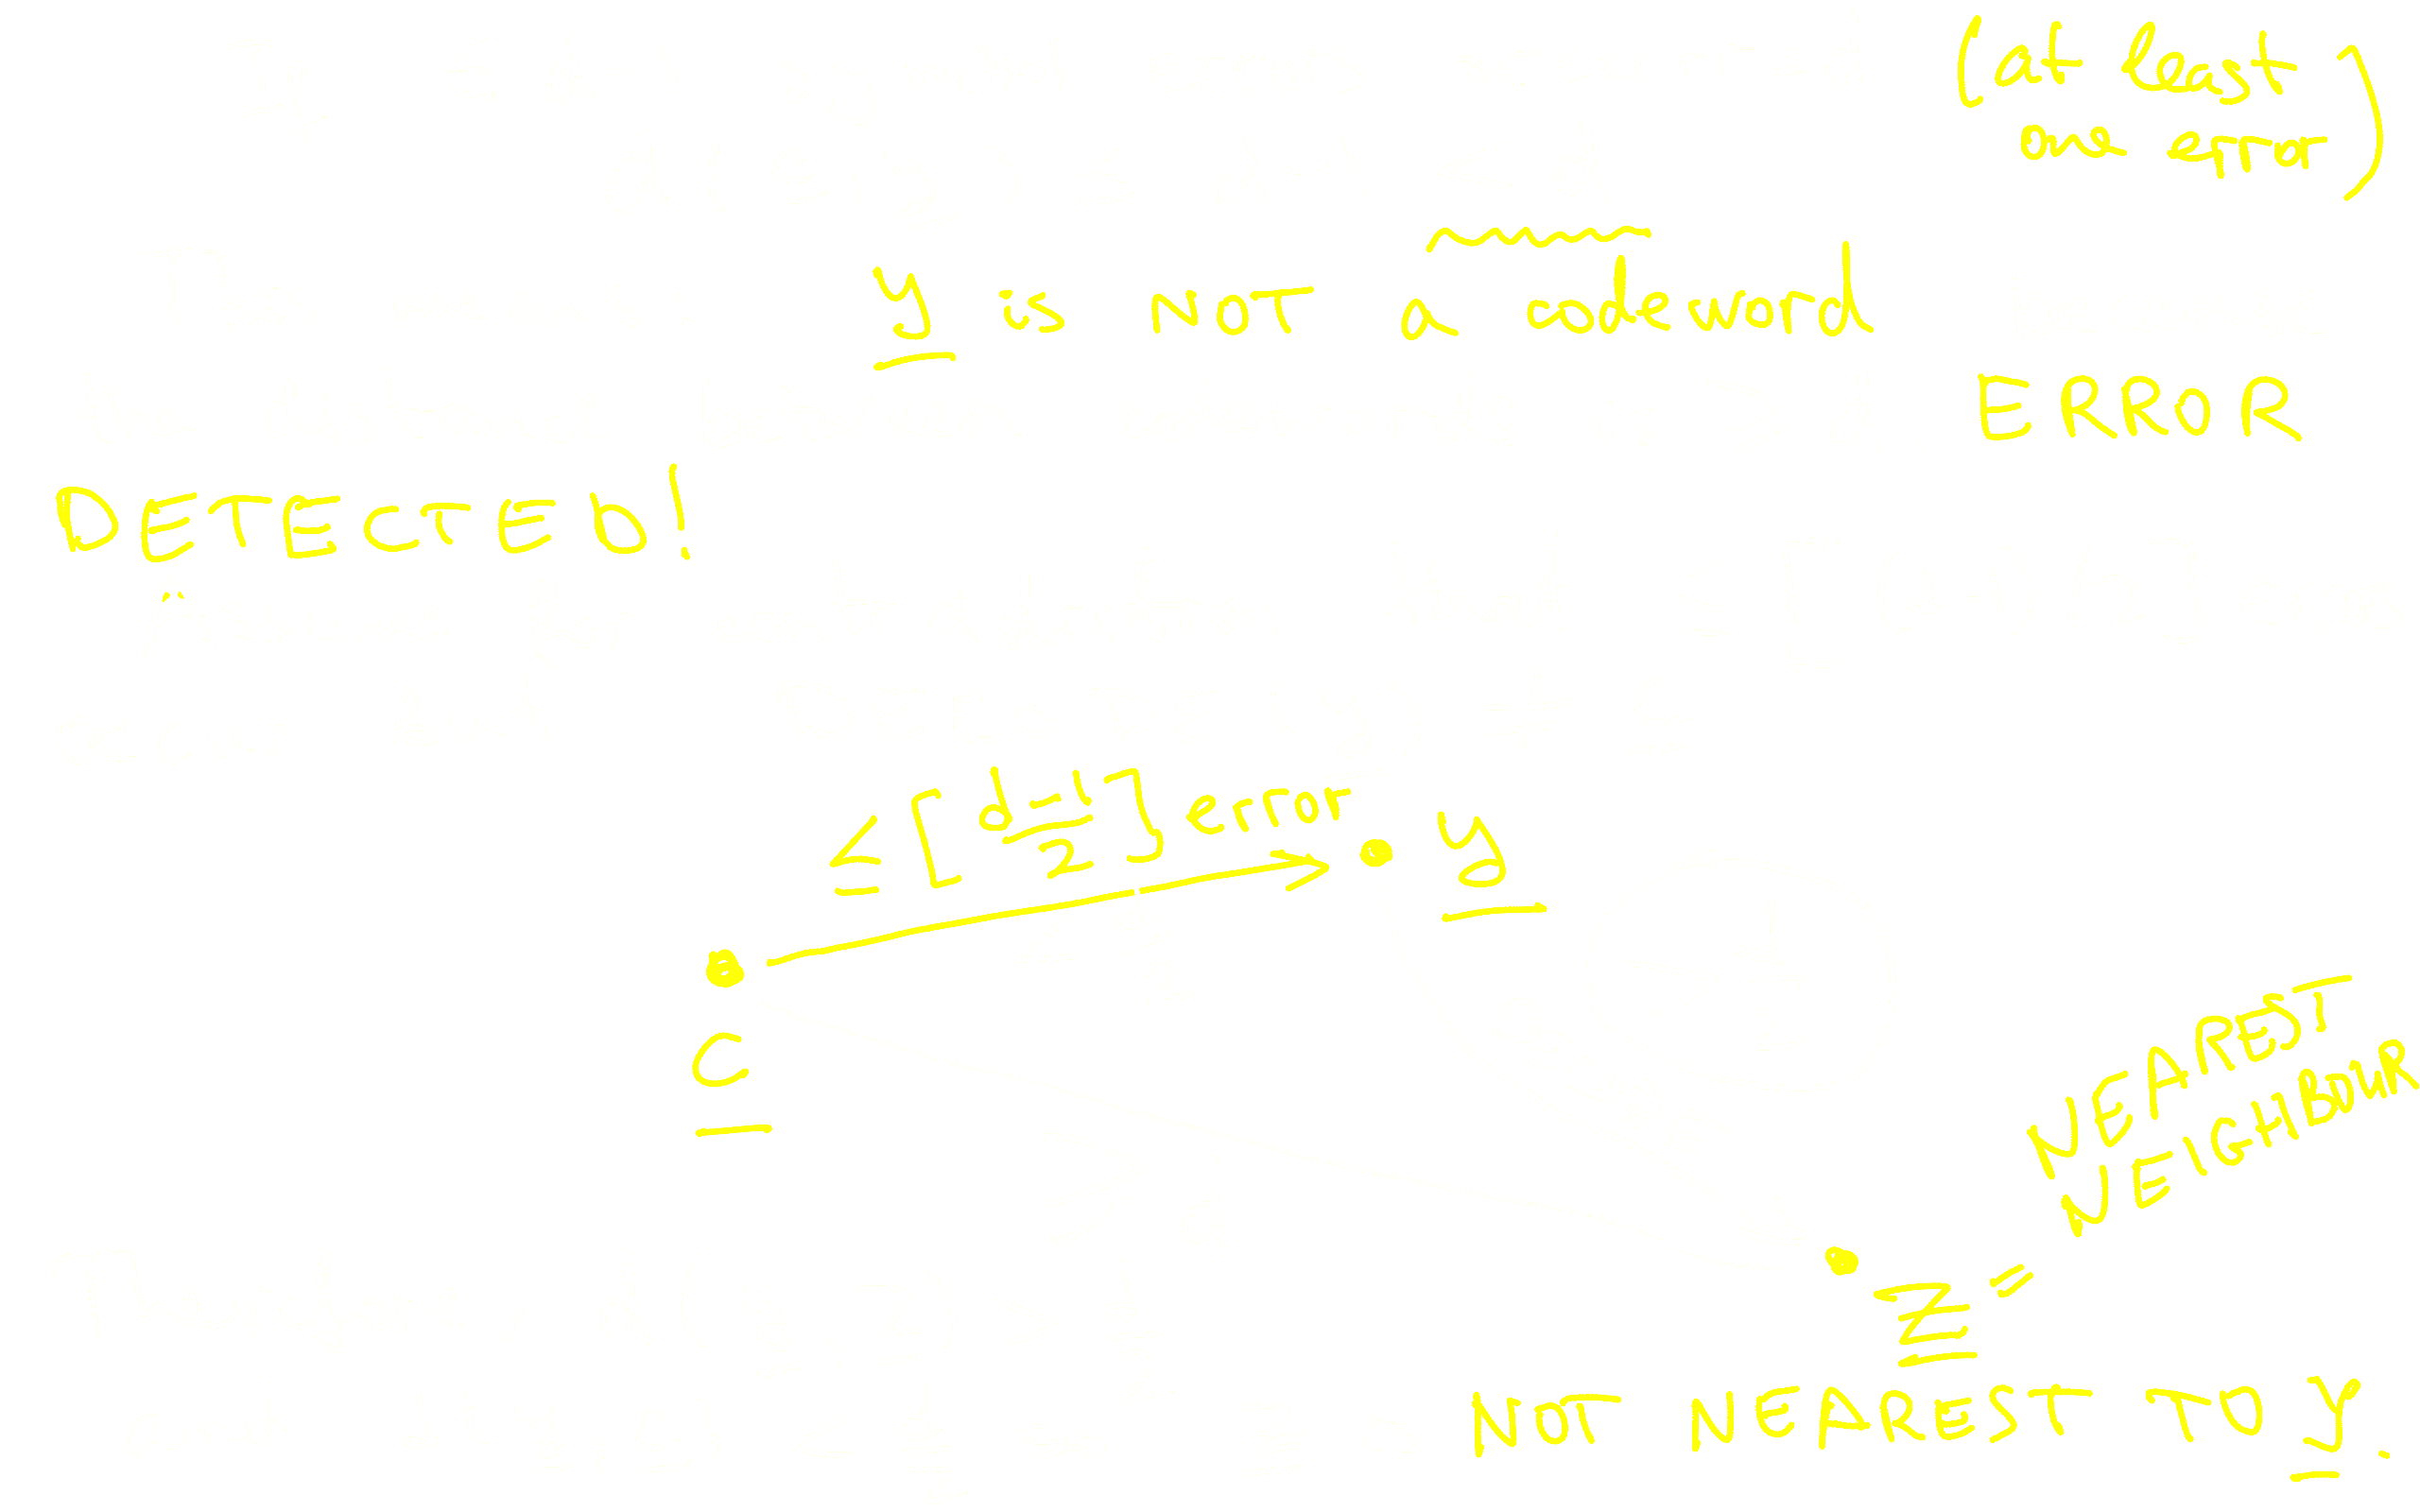 (at least
one error)
y is NOT a codeword
ERROR
DETECTED!
≤ [d-1/2] error
y
c
NEAREST
NEIGHBOUR
z =
NOT NEAREST TO y.